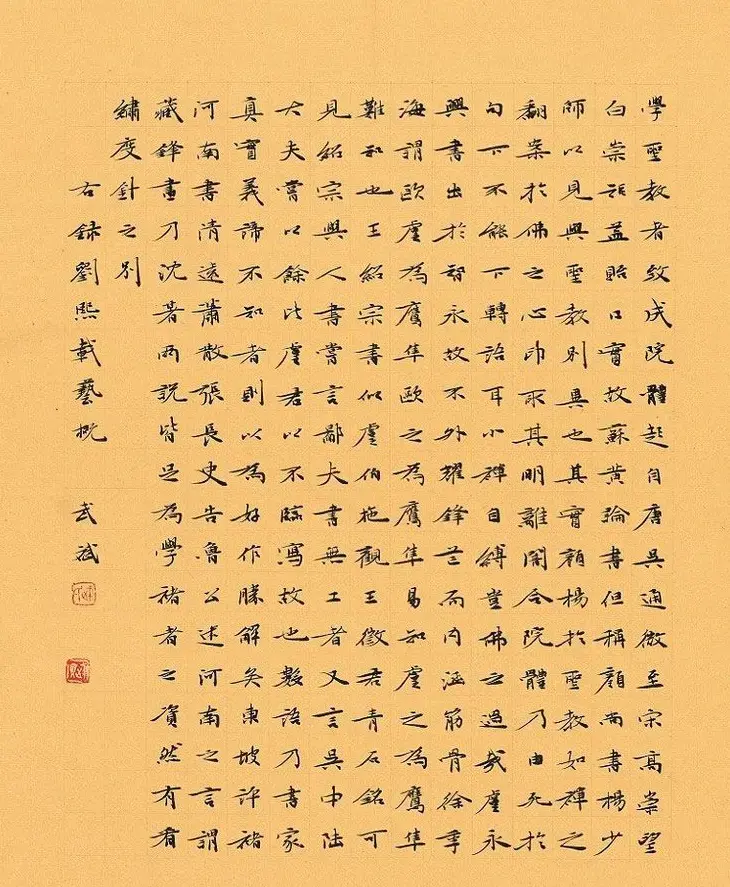 學聖教者致成院體起自唐吳通微至宋高崇望
白崇詎益貽口實故蘇黃論書但稱顏尚書楊少
師以見與聖教別異也其實顏楊於聖教如禪之
翻案於佛之心印取其明離闇合院體乃由死於
句下不能下轉語耳小禪自縛豈佛之過哉虞永
興書出於智永故不外耀鋒芒而內涵筋骨徐季
海謂歐虞為鷹隼歐之為鷹隼易知虞之為鷹隼
難知也王紹宗書似虞伯施觀王徵君青石銘可
見紹宗與人書嘗言鄙夫書無工者又言吳中陸
大夫嘗以餘比虞君以不臨寫故也數語乃書家
真實義諦不知者則以為好作勝解矣東坡評褚
河南書清遠蕭散張長史告魯公述河南之言謂
藏鋒畫乃沈著兩說皆足為學褚者之資然有看
繡度針之別
右錄劉熙載藝概 武斌